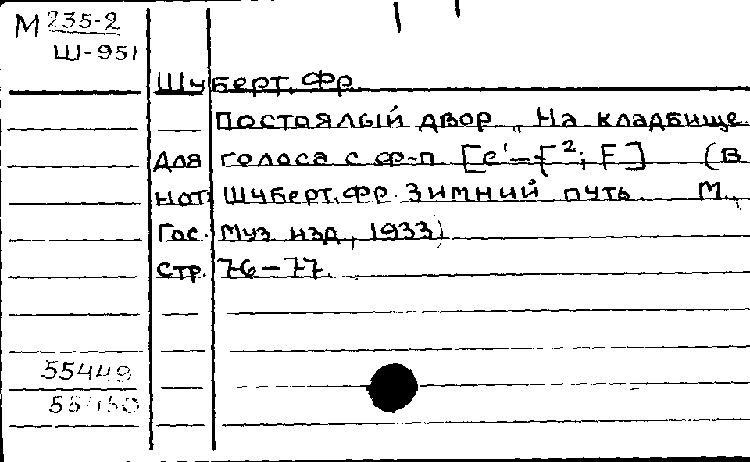 М 235-2
Ш-951
Шуберт, Фр.
Постоялый двор „На кладбище
Для голоса с ф-п. [e¹-f²; F] (В
нот: Шуберт, Фр. Зимний путь. М.,
Гос. Муз изд, 1933)
стр. 76-77.
55449
55450